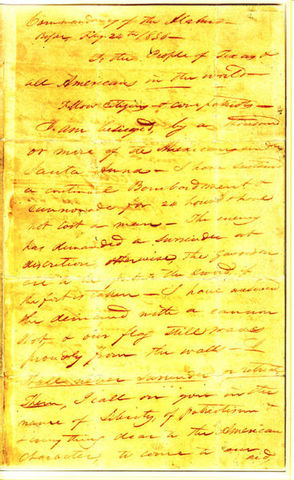 Commandancy of the Alamo—
Bejar, Feby. 24th 1836—
To the People of Texas &
all Americans in the world—
Fellow Citizens & compatriots—
I am besieged, by a thousand
or more of the Mexicans under
Santa Anna— I have sustained
a continual Bombardment &
cannonade for 24 hours & have
not lost a man— The enemy
has demanded a surrender at
discretion, otherwise, the garrison
are to be put to the sword, if
the fort is taken— I have answered
the demand with a cannon
shot, & our flag still waves
proudly from the walls— I
shall never surrender or retreat
Then, I call on you in the
name of Liberty, of patriotism &
& everything dear to the American
character, to come to our aid,